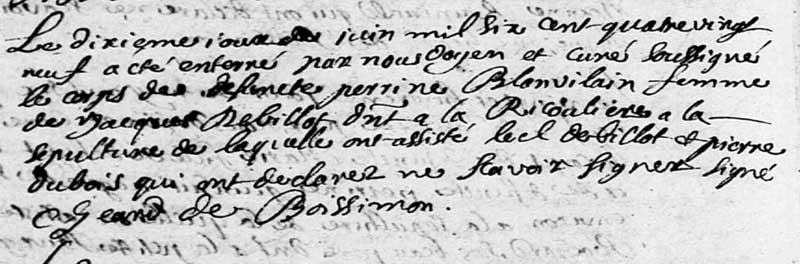 Le dixieme jour de juin mil six cent quatre vingt
neuf a eté enterré par nous doyen et curé soussigné
le corps de defuncte perrine Blonvilain femme
de Jacques Rebillot dnt a la Ricoulière a la
sepulture de laquelle ont assisté led Rebillot & pierre
dubois qui ont declarez ne scavoir signer signé
de Boissimon.